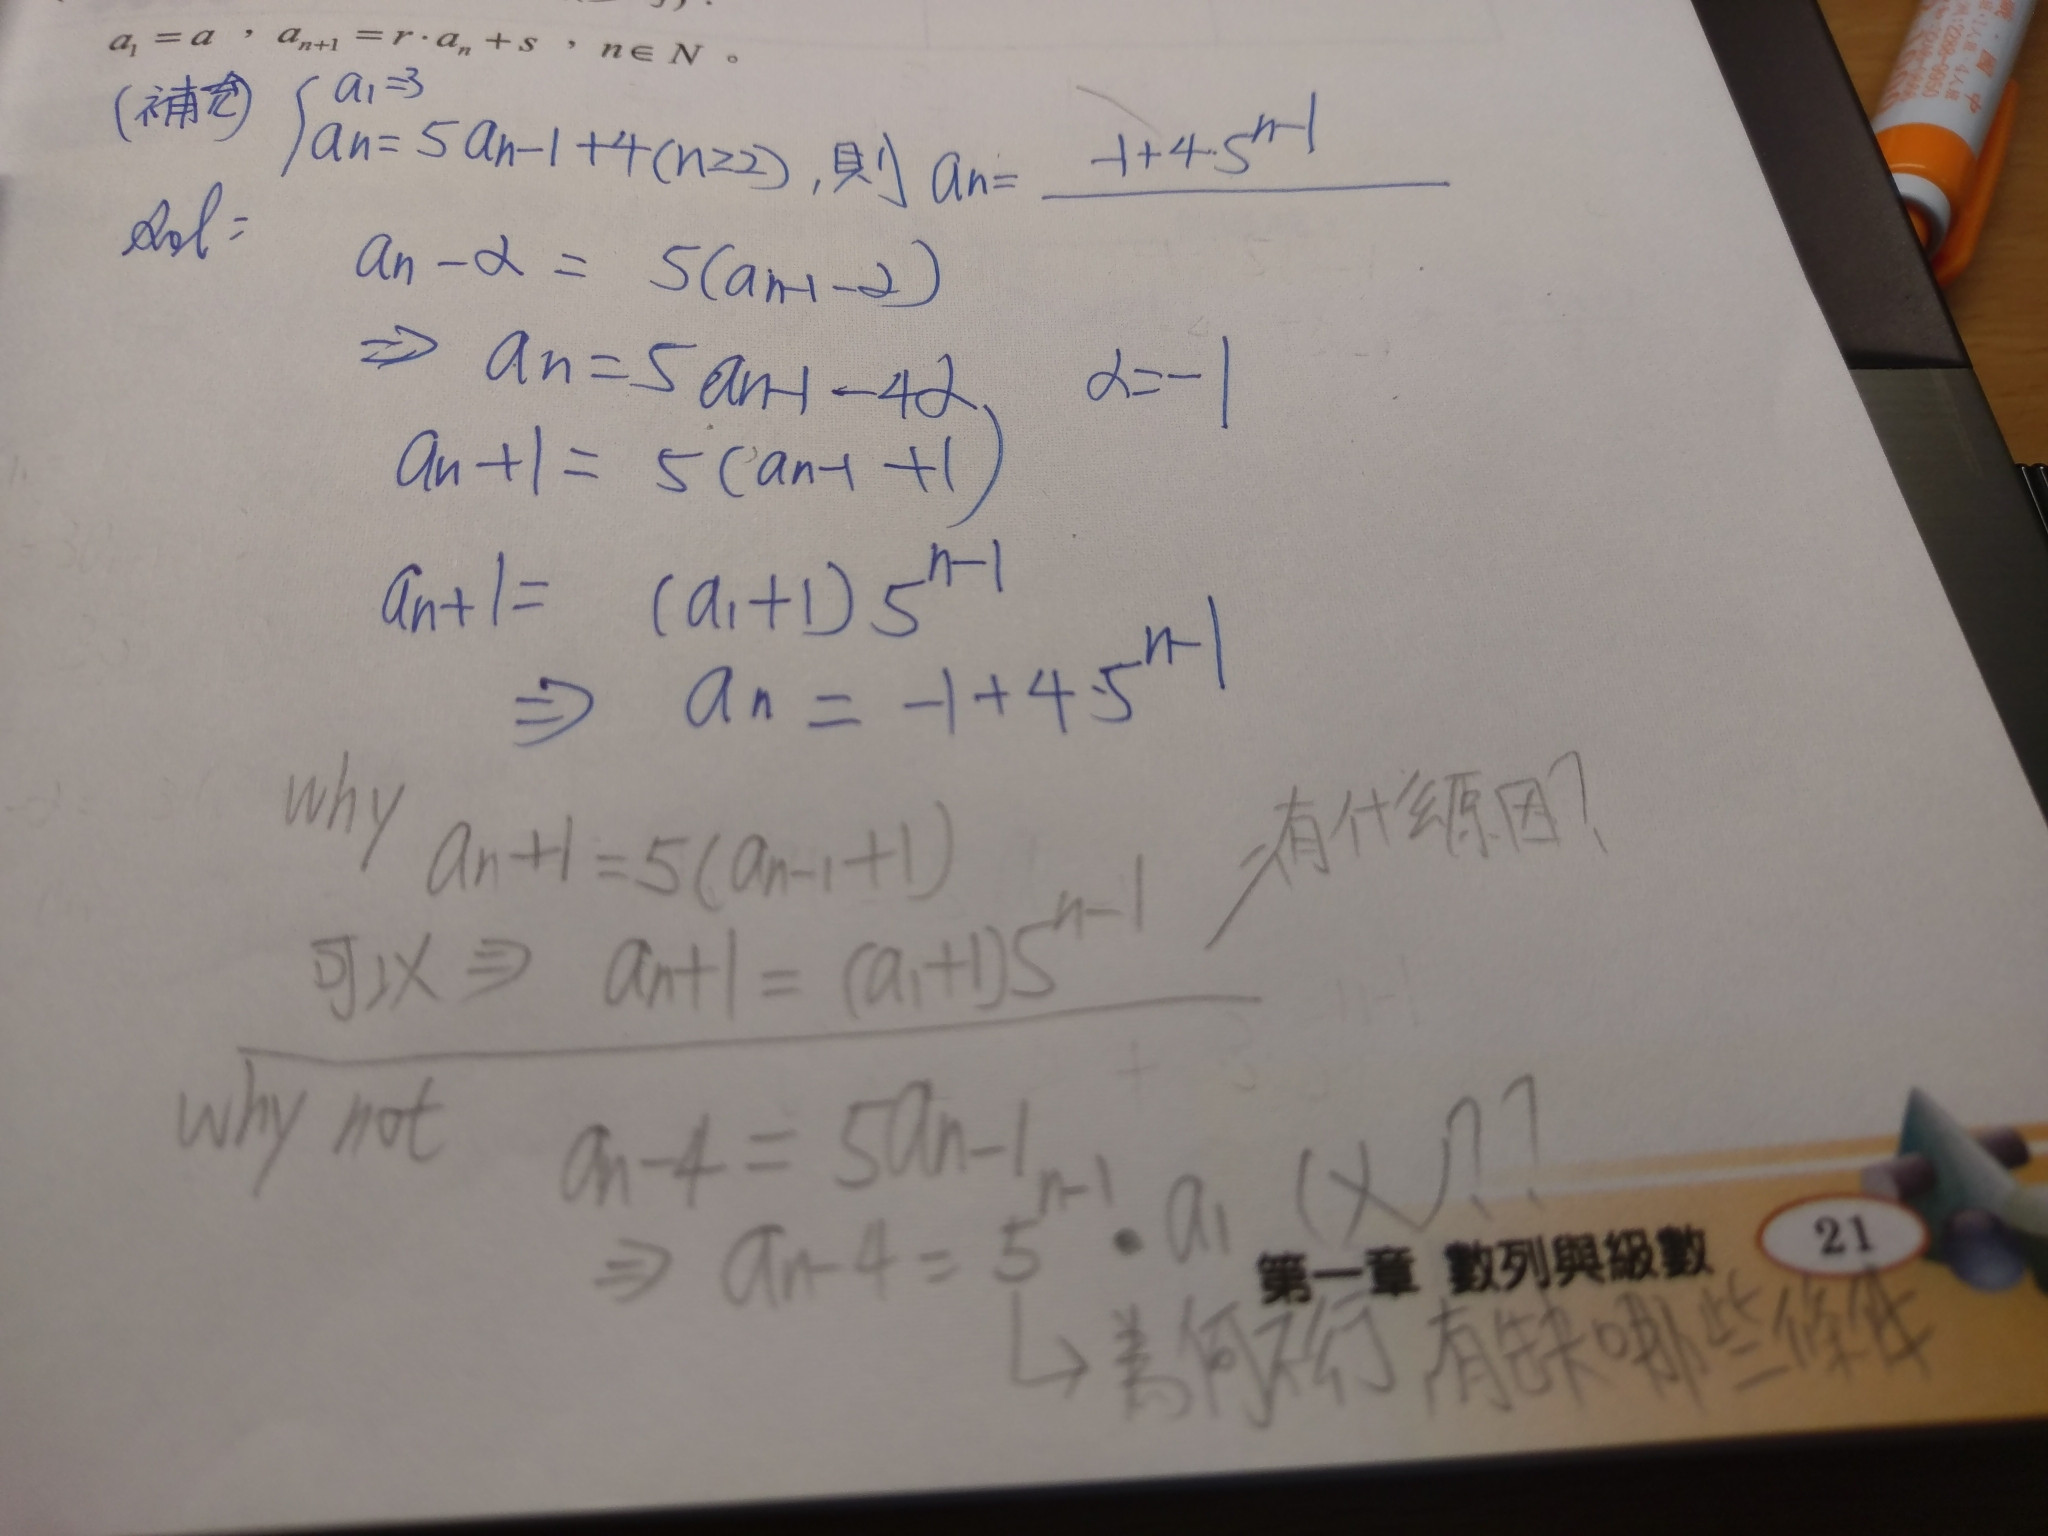 a₁ = a ， aₙ₊₁ = r · aₙ + s ， n ∈ N 。
(補充) { a₁=3
aₙ = 5aₙ₋₁+4(n≥2), 則 aₙ= -1+4·5ⁿ⁻¹
Sol:
aₙ-α = 5(aₙ₋₁-α)
⇒ aₙ=5aₙ₋₁-4α, α=-1
aₙ+1= 5(aₙ₋₁+1)
aₙ+1= (a₁+1)5ⁿ⁻¹
⇒ aₙ = -1+4·5ⁿ⁻¹
why aₙ+1=5(aₙ₋₁+1)
可以⇒ aₙ+1=(a₁+1)5ⁿ⁻¹ 有什么原因?
why not aₙ-4=5aₙ₋₁
⇒ aₙ-4=5ⁿ⁻¹·a₁ (×)??
第一章 數列與級數 21
↳為何不行 有缺哪些條件